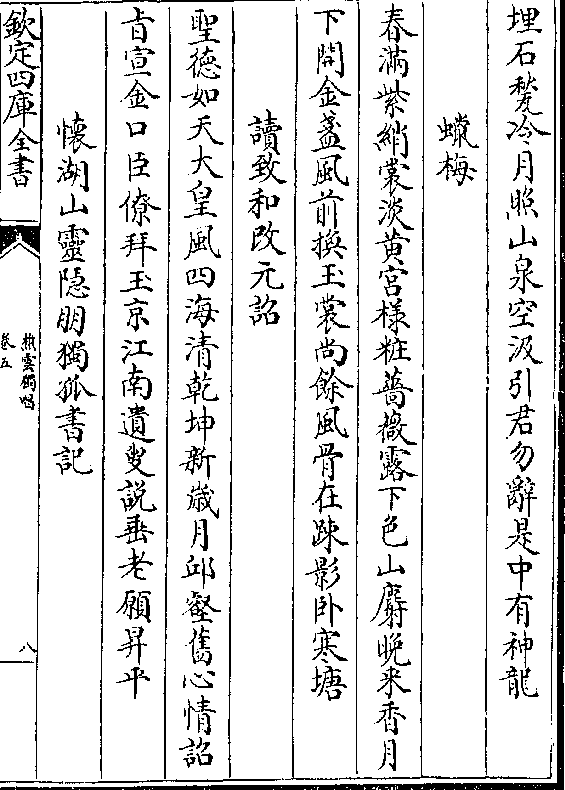 埋石甃冷月照山泉空汲引君勿辭是中有神龍
蠟梅
春滿紫綃裳淡黄宫様粧薔薇露下色山麝晚来香月
下問金盞風前換玉裳尚餘風骨在疎影卧寒塘
讀致和改元詔
聖徳如天大皇風四海清乾坤新歳月邱壑舊心情詔
㫖宣金口臣僚拜玉京江南遺叟説垂老願昇平
懐湖山靈隠朋獨孤書記
欽定四庫全書
樵雲獨唱
卷五
八